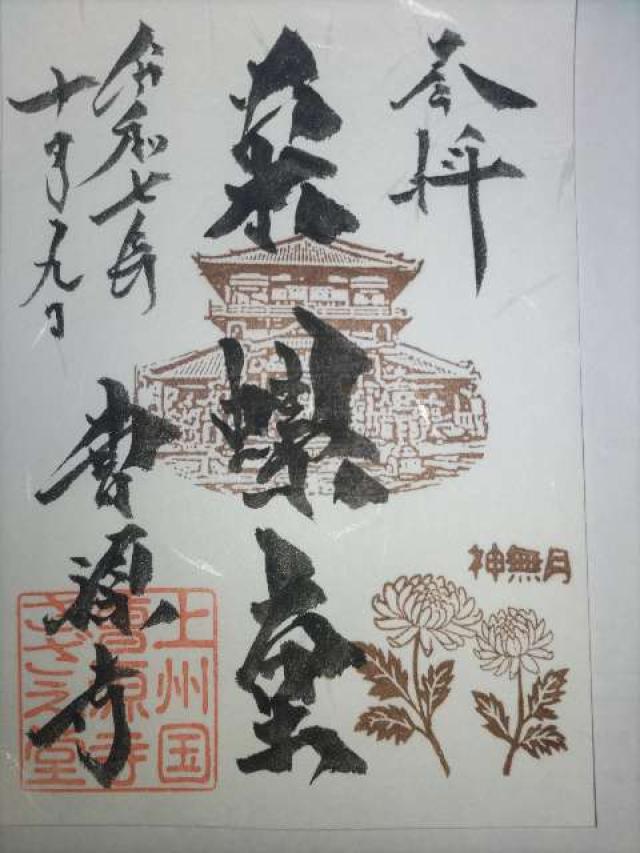 奉拝
栄螺堂
令和七年
十月九日
曹源寺
神無月
上州国
曹源寺
さゞえ堂